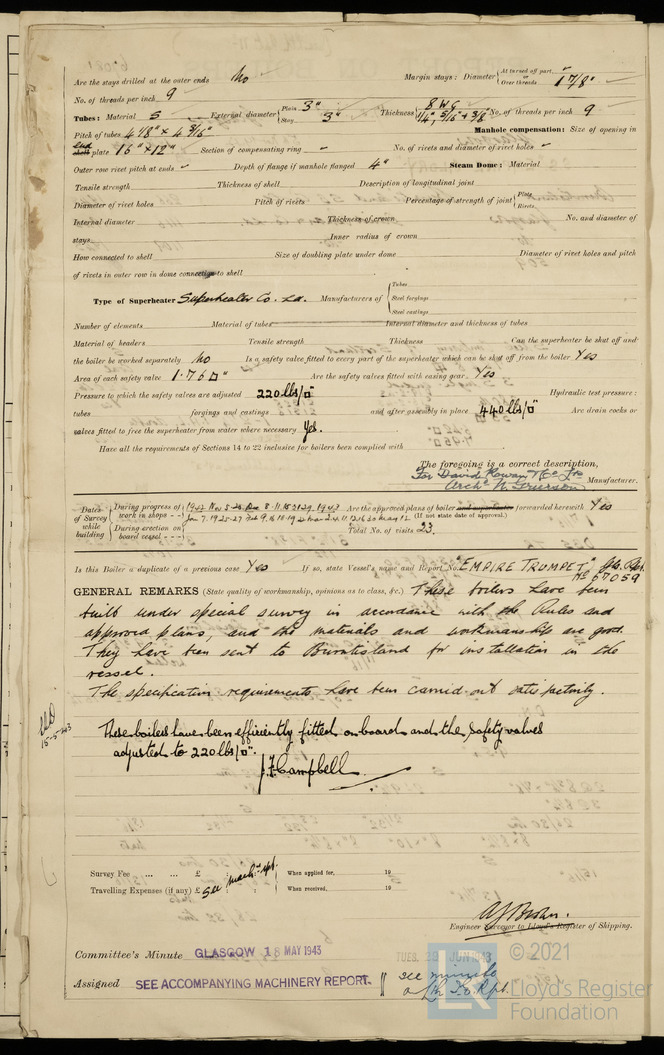 Are the stays drilled at the outer ends No Margin stays: Diameter { At turned off part, "
Over threads 1 7/8"
No. of threads per inch 9
Tubes: Material S External diameter { Plain 3" Stay 3" Thickness { 8 WG 1/4" 5/16" & 3/8" No. of threads per inch 9
Pitch of tubes 4 1/8" x 4 3/16" Manhole compensation: Size of opening in
end
shell plate 16" x 12" Section of compensating ring No. of rivets and diameter of rivet holes
Outer row rivet pitch at ends Depth of flange if manhole flanged 4" Steam Dome: Material
Tensile strength Thickness of shell Description of longitudinal joint
Diameter of rivet holes Pitch of rivets Percentage of strength of joint { Plate
Rivets
Internal diameter Thickness of crown No. and diameter of
stays Inner radius of crown
How connected to shell Size of doubling plate under dome Diameter of rivet holes and pitch
of rivets in outer row in dome connection to shell
Type of Superheater Superheater Co. Ld. Manufacturers of { Tubes
Steel forgings
Steel castings
Number of elements Material of tubes Internal diameter and thickness of tubes
Material of headers Tensile strength Thickness Can the superheater be shut off and
the boiler be worked separately No Is a safety valve fitted to every part of the superheater which can be shut off from the boiler Yes
Area of each safety valve 1.76 □" Are the safety valves fitted with easing gear Yes
Pressure to which the safety valves are adjusted 220 lbs/□" Hydraulic test pressure:
tubes forgings and castings and after assembly in place 440 lbs/□" Are drain cocks or
valves fitted to free the superheater from water where necessary Yes.
Have all the requirements of Sections 14 to 22 inclusive for boilers been complied with
The foregoing is a correct description,
For David Rowan & Co. Ltd
Archd W. Grierson Manufacturer.
Dates of Survey while building { During progress of work in shops - - 1942 Nov 5 Dec 8. 11. 15. 21. 29, 1943 Are the approved plans of boiler and superheater forwarded herewith Yes
Jan 7. 19. 25. 27 Feb 9. 16. 18. 19 (If not state date of approval.)
During erection on board vessel - - - Total No. of visits 23.
Is this Boiler a duplicate of a previous case Yes If so, state Vessel's name and Report No. "EMPIRE TRUMPET" Gls. Rpt.
No 67059
GENERAL REMARKS (State quality of workmanship, opinions as to class, &c.) These boilers have been
built under special survey in accordance with the Rules and
approved plans, and the materials and workmanship are good.
They have been sent to Burntisland for installation in the
vessel.
The specification requirements have been carried out satisfactorily.
15-5-43
These boilers have been efficiently fitted on board and the safety valves
adjusted to 220 lbs/□".
J. F. Campbell
Survey Fee ... ... £ : : When applied for, 19
See mach. rpt.
Travelling Expenses (if any) £ : : When received, 19
Engineer Surveyor to Lloyd's Register of Shipping.
Committee's Minute GLASGOW 18 MAY 1943 TUES. JUN 1943
Assigned SEE ACCOMPANYING MACHINERY REPORT. see minute
on Lth. F.E. Rpt.
LR © 2021
Lloyd's Register
Foundation